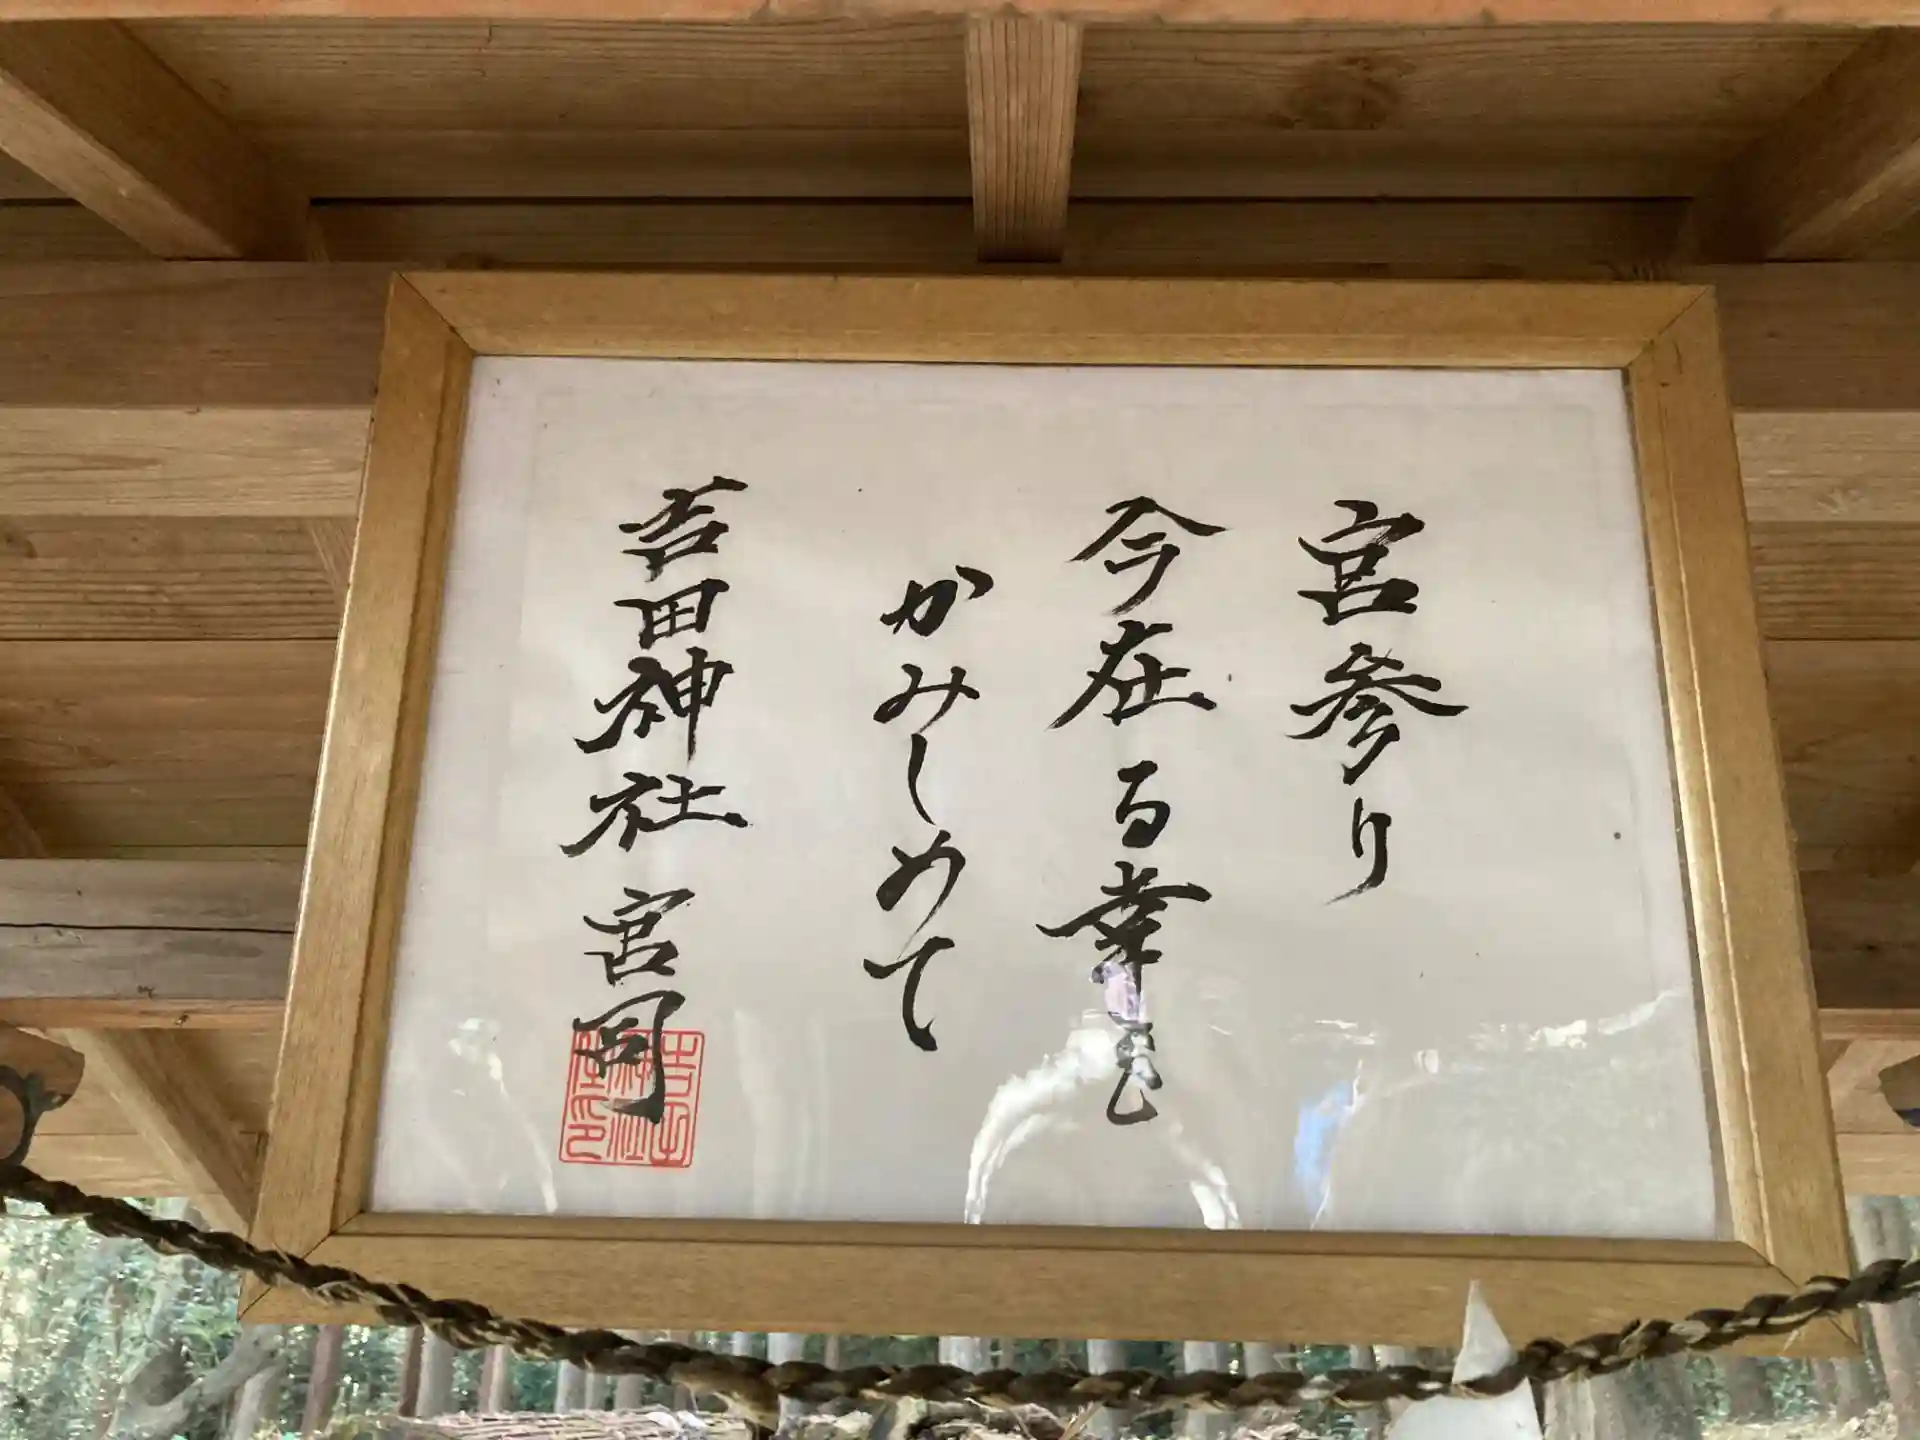 宮参り
今在る幸せ
かみしめて
苔田神社宮司